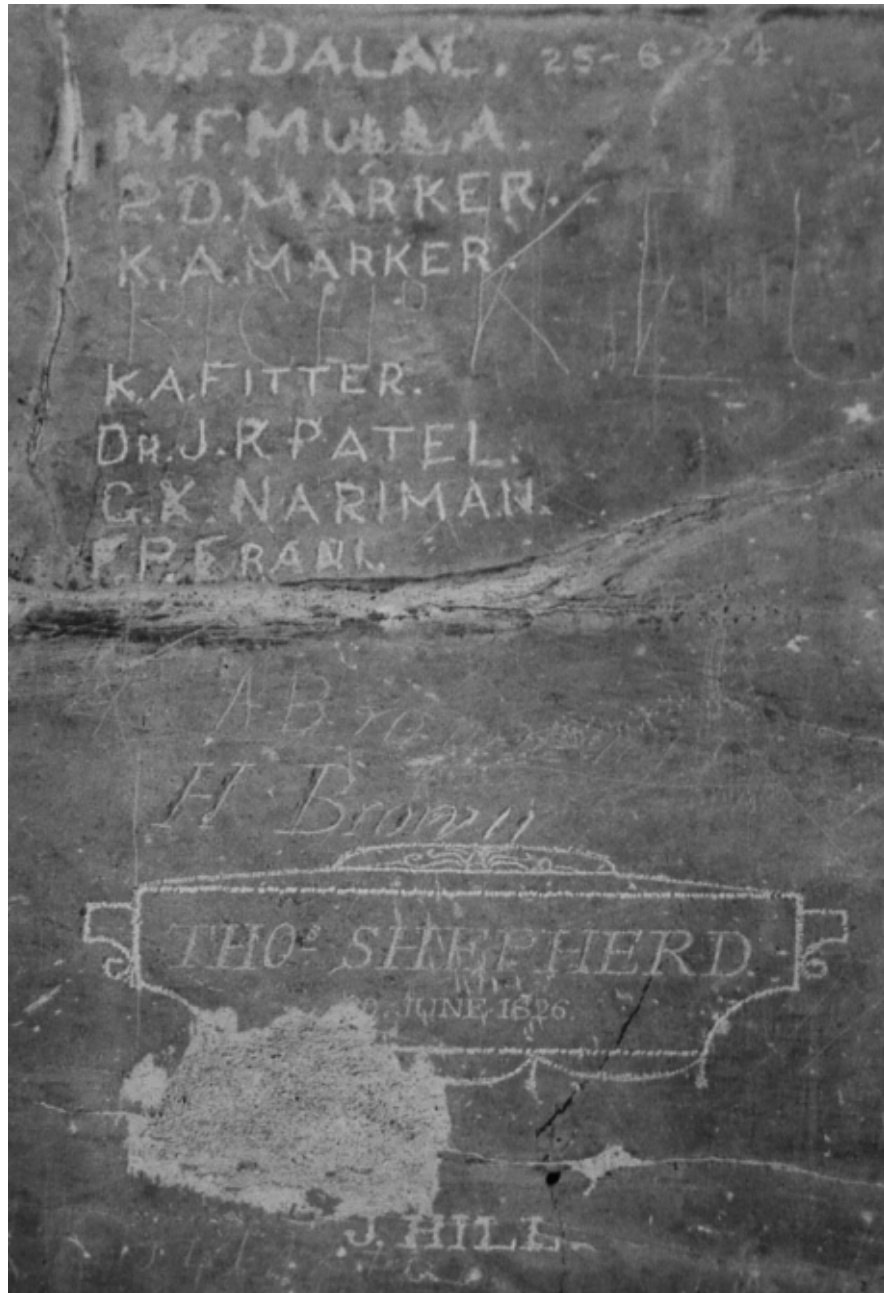 DALAL. 25-6-24.
M.F.MULLA.
P.D.MARKER.
K.A.MARKER.
RICHD KEU
K.A.FITTER.
DR.J.R PATEL.
G.K.NARIMAN.
F.P.ERANI.
A B
H Brown
THOS SHEPHERD
JUNE 1826.
J. HILL